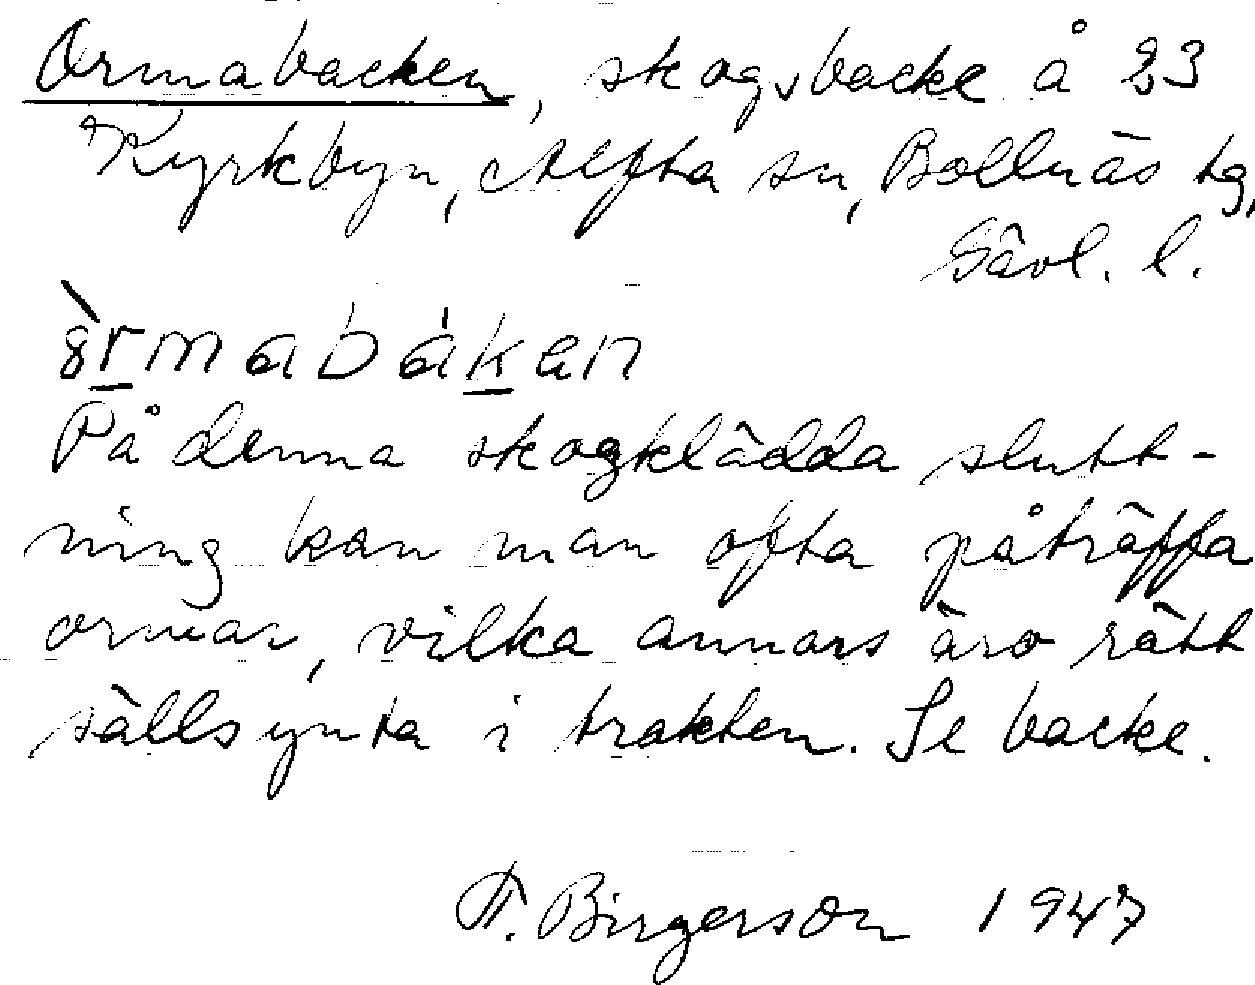 Ormabacken, skogsbacke å 23
Kyrkbyn, Alfta sn, Bollnäs tg,
Gävl. l.
òrmabákan
På denna skogklädda slutt-
ning kan man ofta påträffa
ormar, vilka annars äro rätt
sällsynta i trakten. Se backe.
F. Birgerson 1947